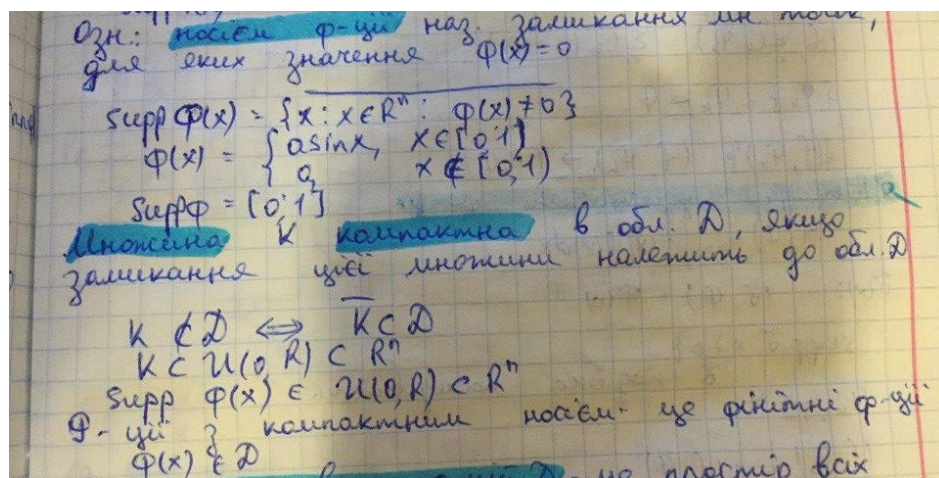 Озн.: носієм ф-ції наз. замикання мн точок,
для яких значення φ(x)=0
supp φ(x) = {x: x∈Rⁿ: φ(x)≠0}
φ(x) = { asinx, x∈[0;1)
0, x∉[0;1)
suppφ = [0;1]
Множина K компактна в обл. D, якщо
замикання цієї множини належить до обл. D
K ⊄ D ⟺ K̅ ⊂ D
K ⊂ U(0,R) ⊂ Rⁿ
supp φ(x) ∈ U(0,R) ⊂ Rⁿ
Ф-ції з компактним носієм - це фінітні ф-ції
φ(x) ∈ D
це простір всіх